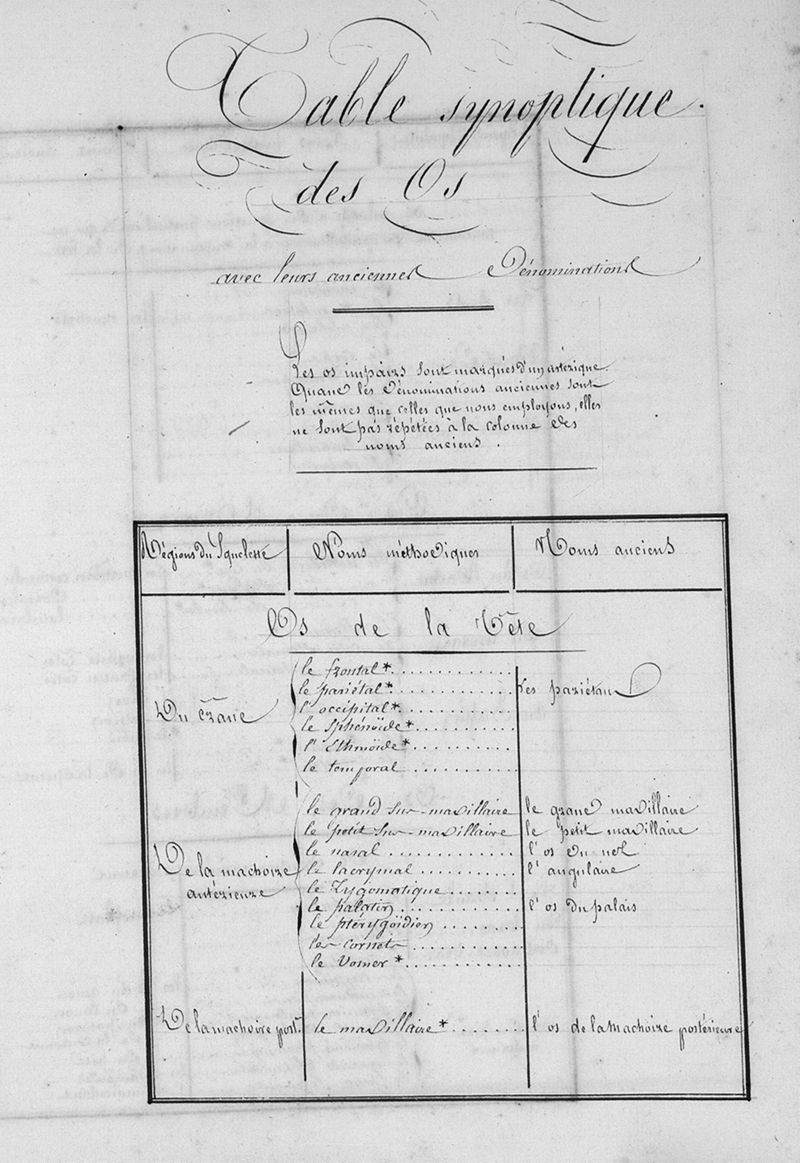 Table synoptique.
des Os
avec leurs anciennes Dénominations
Les os impairs sont marqués d'un astérique.
Quand les Dénominations anciennes sont
les mêmes que celles que nous employons, elles
ne sont pas répétées à la colonne des
noms anciens.
Régions du Squelette Noms méthodiques Noms anciens
Os de la Tête
le frontal* ..........
le pariétal* .......... Les pariétaux
Du Crâne l'occipital* ..........
le Sphénoïde* ..........
l'Ethmoïde* ..........
le temporal ..........
le grand sus-maxillaire le grand maxillaire
le petit sus-maxillaire le petit maxillaire
De la machoire le nasal .......... l'os du nez
antérieure le lacrymal .......... l'angulaire
le Zygomatique ..........
le palatin .......... l'os du palais
le ptérygoïdien ..........
les cornets ..........
le Vomer* ..........
De la machoire post.re le maxillaire* .......... l'os de la machoire postérieure